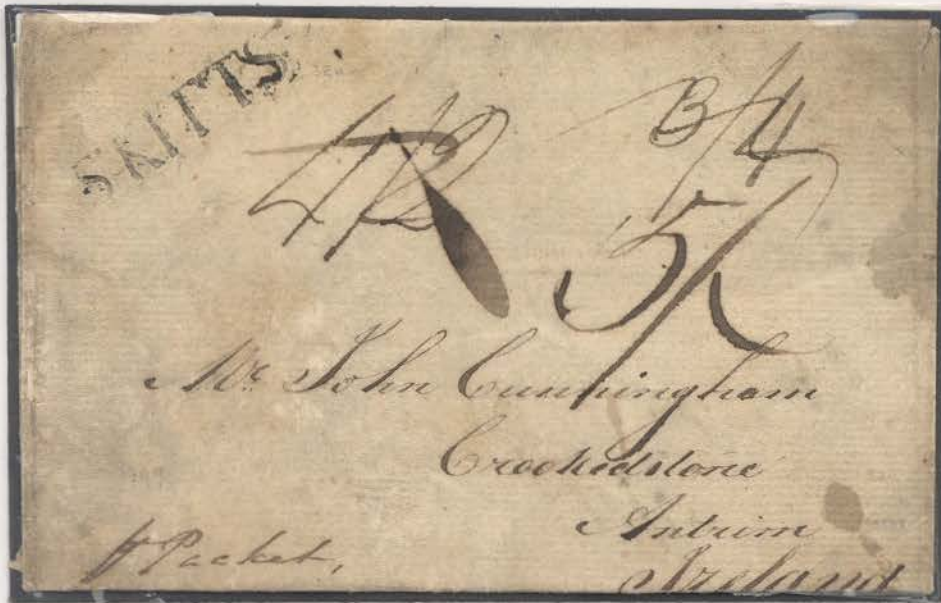 S·KITTS
3/4
5/
Mr. John Cunningham
Crookedstone
Antrim
Ireland
pr Packet,